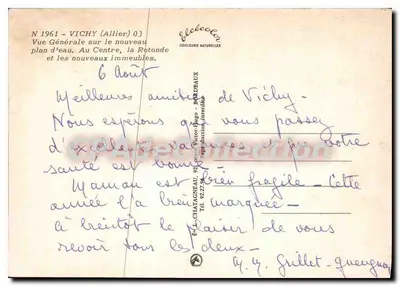 N 1961 - VICHY (Allier) 03
Vue Générale sur le nouveau
plan d'eau. Au Centre, la Rotonde
et les nouveaux immeubles.
elcécolor
COULEURS NATURELLES
6 Août
Meilleures amitiés de Vichy -
Nous espérons que vous passez
d'excellentes vacances et que votre
santé est bonne -
Maman est bien fragile - Cette
année l'a bien marquée -
à bientôt le plaisir de vous
revoir tous les deux -
M. M. Grillet - Gueugnon
CHATAGNEAU
BORDEAUX
Tél. 92.27